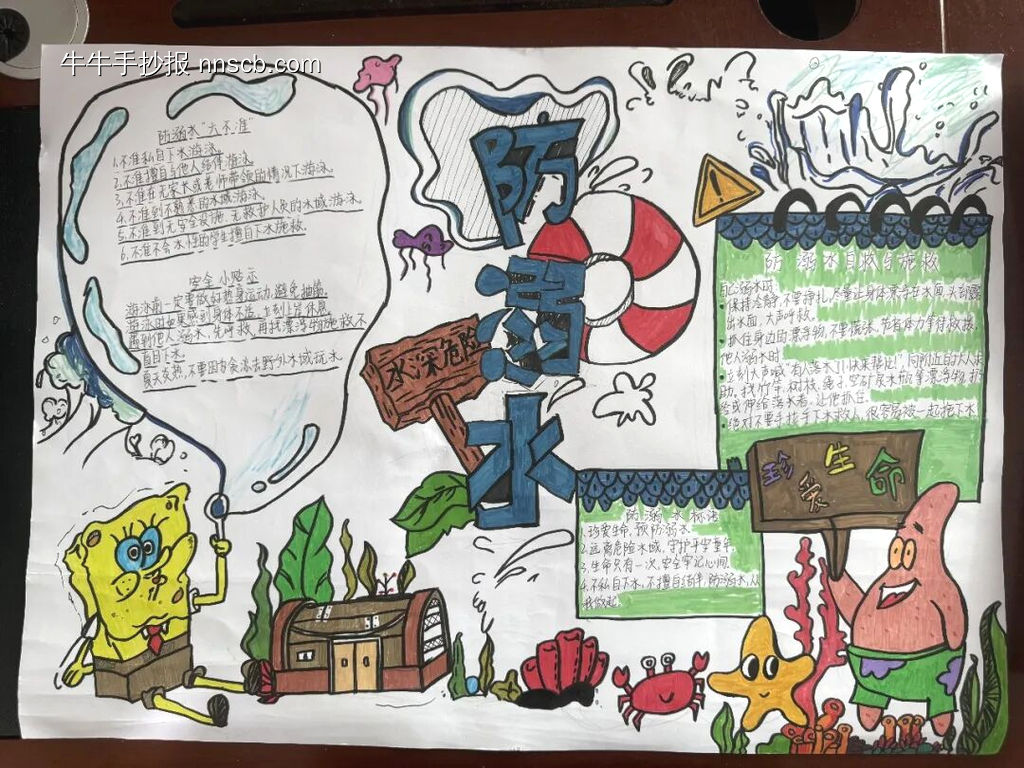 牛牛手抄报 nnscb.com
防溺水"六不准"
1.不准私自下水游泳.
2.不准擅自与他人结伴游泳.
3.不准在无家长或老师带领的情况下游泳.
4.不准到不熟悉的水域游泳.
5.不准到无安全设施、无救护人员的水域游泳
6.不准不会水性的学生擅自下水施救.
安全小贴示
游泳前一定要做好热身运动,避免抽筋.
游泳时如果感到身体不适,立刻上岸休息.
遇到他人溺水,先呼救,再找漂浮物施救,不
盲目下水.
夏天炎热,不要因贪凉去野外水域玩水.
防溺水
水深危险
防溺水自救与施救
自己溺水时
保持冷静,不要挣扎,尽量让身体漂浮在水面,头部露
出水面,大声呼救.
抓住身边的漂浮物,不要慌张,节省体力等待救援.
他人溺水时
立刻大声喊"有人落水了!快来帮忙!"向附近的大人求
助,找竹竿、树枝、绳子、空矿泉水瓶等漂浮物,抛
给或伸给落水者,让他抓住.
绝对不要手拉手下水救人,很容易被一起拖下水.
珍爱生命
防溺水标语
1.珍爱生命,预防溺水.
2.远离危险水域,守护平安童年.
3.生命只有一次,安全牢记心间.
4.不私自下水,不擅自结伴,防溺水,从
我做起.